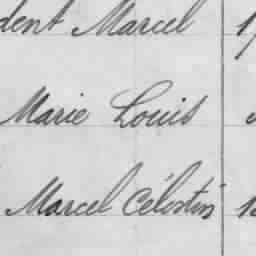 dent Marcel
Marie Louis
Marcel Célestin